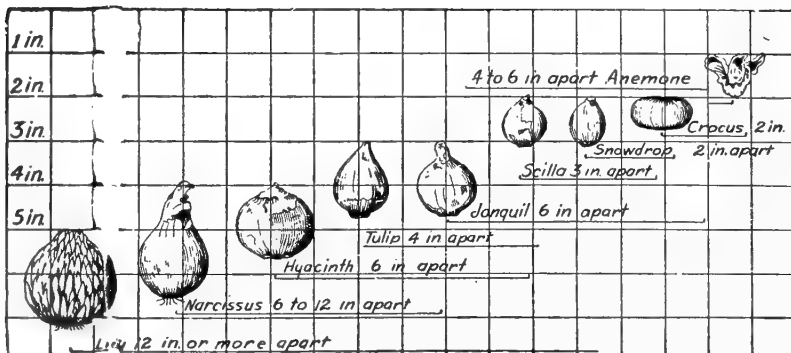 1 in.
2 in.
3 in.
4 in.
5 in.
4 to 6 in apart Anemone
Crocus, 2 in.
Snowdrop 2 in. apart
Scilla 3 in. apart
Jonquil 6 in apart
Tulip 4 in apart
Hyacinth 6 in apart
Narcissus 6 to 12 in apart
Lily 12 in. or more apart